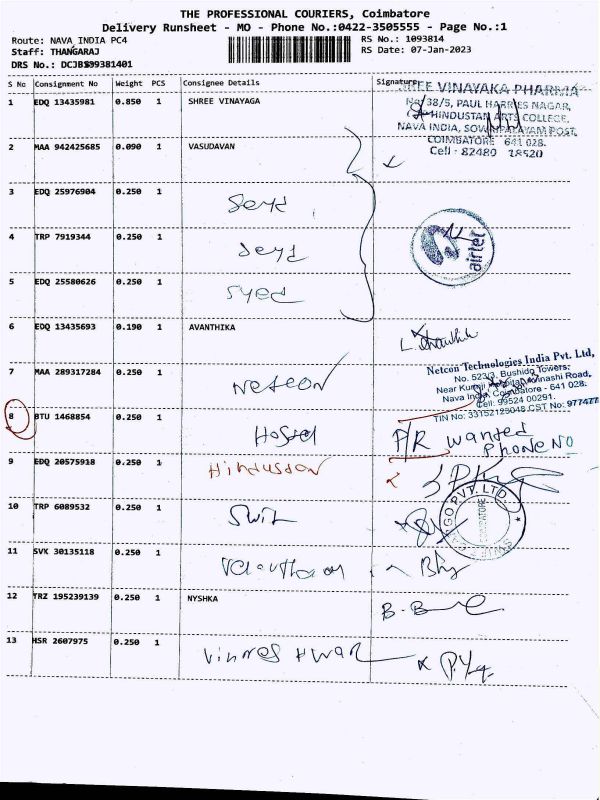 THE PROFESSIONAL COURIERS, Coimbatore
Delivery Runsheet - MO - Phone No.:0422-3505555 - Page No.:1
Route: NAVA INDIA PC4
RS No.: 1093814
Staff: THANGARAJ
RS Date: 07-Jan-2023
S No Consignment No Weight PCS Consignee Details Signature
1 EDQ 13435981 0.850 1 SHREE VINAYAGA
SHREE VINAYAKA PHARMA
No 38/5, PAUL HARRIES NAGAR,
HINDUSTAN ARTS COLLEGE,
NAVA INDIA, SOWRIPALAYAM POST,
COIMBATORE 641 028.
Cell : 82480 18520
2 MAA 942425685 0.090 1 VASUDAVAN
3 EDQ 25976904 0.250 1 Seyd
4 TRP 7919344 0.250 1 Seyd
airtel
5 EDQ 25580626 0.250 1 Syed
6 EDQ 13435693 0.190 1 AVANTHIKA
7 MAA 289317284 0.250 1 Netcon
Netcon Technologies India Pvt. Ltd,
No. 523/3, Bushido Towers,
Near Hospital, Avinashi Road,
Nava India, Coimbatore - 641 028.
Cell: 99524 00291.
TIN No: 33152123048 CST No: 977477
8 BTU 1468854 0.250 1 Hostel P/R wanted
Phone No
9 EDQ 20575918 0.250 1 Hinduston
10 TRP 6089532 0.250 1
PVT. LTD.
COIMBATORE
11 SVK 30135118 0.250 1
12 TRZ 195239139 0.250 1 NYSHKA
13 HSR 2607975 0.250 1